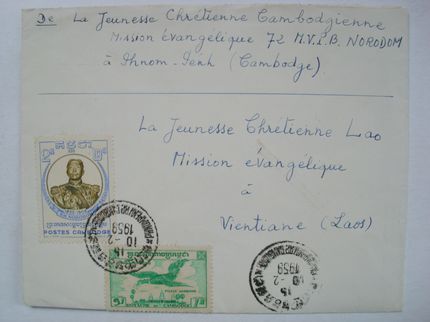 De La Jeunesse Chrétienne Cambodgienne
Mission évangélique 72 M.V.I.B. NORODOM
à Phnom-Penh (Cambodge)
La Jeunesse Chrétienne Lao
Mission évangélique
à
Vientiane (Laos)
POSTES CAMBODGE
15
10-2
1959
15
10-2
1959
POSTE AERIENNE
ROYAUME DU CAMBODGE